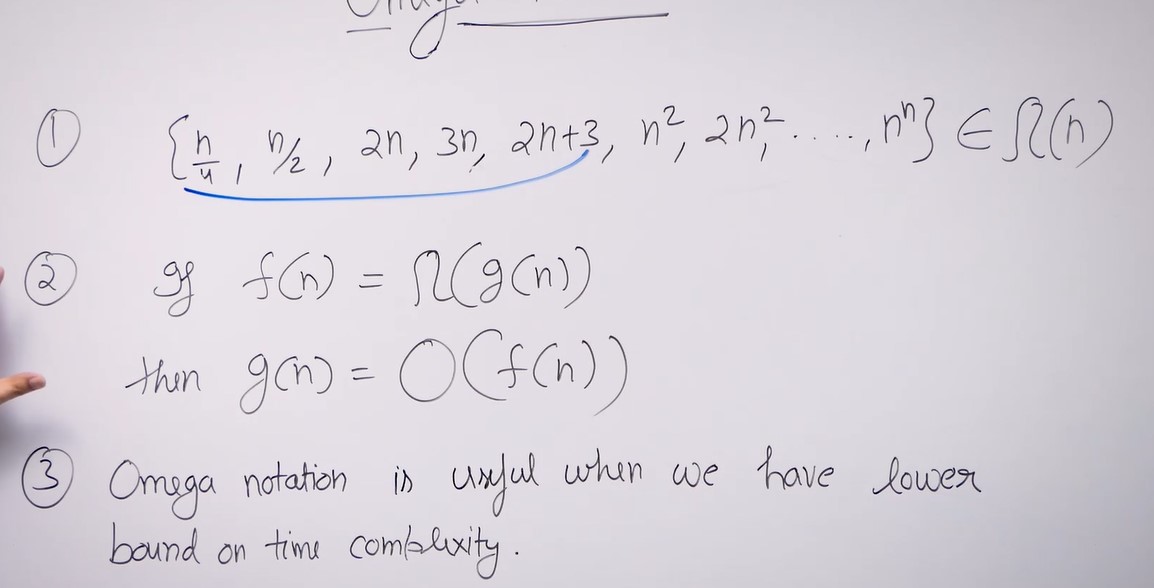 Omega
① {n/4, n/2, 2n, 3n, 2n+3, n², 2n², ....., nⁿ} ∈ Ω(n)
② If f(n) = Ω(g(n))
then g(n) = O(f(n))
③ Omega notation is useful when we have lower
bound on time complexity.